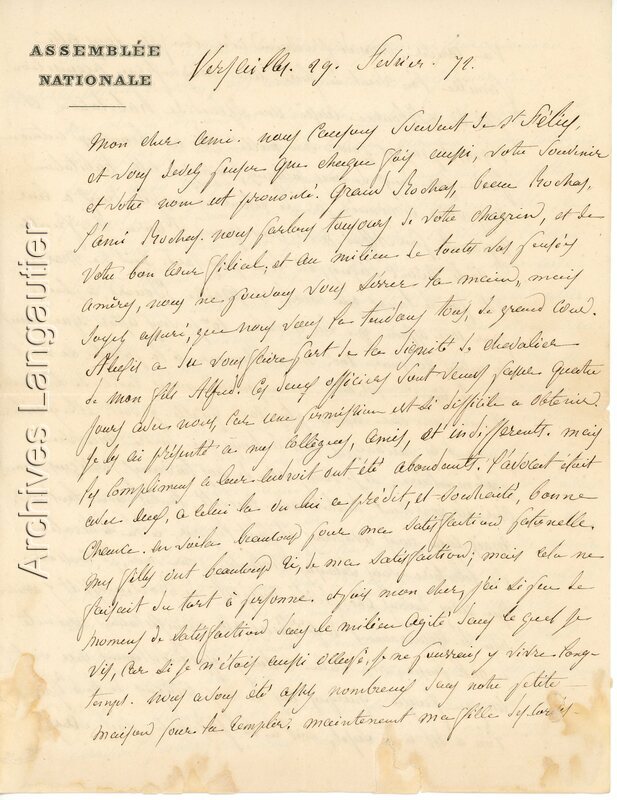 ASSEMBLÉE
NATIONALE
Versailles. 29. Fevrier. 72.
Mon cher ami. nous causons souvent de St Félix,
et vous devez penser que chaque fois aussi, votre souvenir
et votre nom est prononcé. Grand Rochas, beau Rochas,
l'ami Rochas. nous parlons toujours de votre chagrin, et de
votre bon cœur filial, et au milieu de toutes vos pensées
amères, nous ne pouvons vous serrer la main, mais
soyez assuré, que nous vous la tendons tous, de grand cœur.
a du vous faire part de la dignité de chevalier
de mon fils Alfred. Ces deux officiers sont venus passer quatre
jours avec nous, car une permission est si difficile a obtenir.
je les ai présenté a mes collègues, amis, et indifferents. mais
les compliments a leur endroit ont été abondants. l'avocat était
avec eux, a celui la on lui a prédit, et souhaité, bonne
chance. en voila beaucoup pour ma satisfaction paternelle.
Mes filles ont beaucoup ri, de ma satisfaction; mais cela ne
faisait du tort à personne. mon cher, j'ai si peu de
moments de satisfaction dans le milieu agité dans le quel je
vis, car si je n'étais aussi je ne pourrais y vivre long-
temps. nous avons été assez nombreux dans notre petite
maison pour la remplir. maintenant ma fille
Archives Langautier